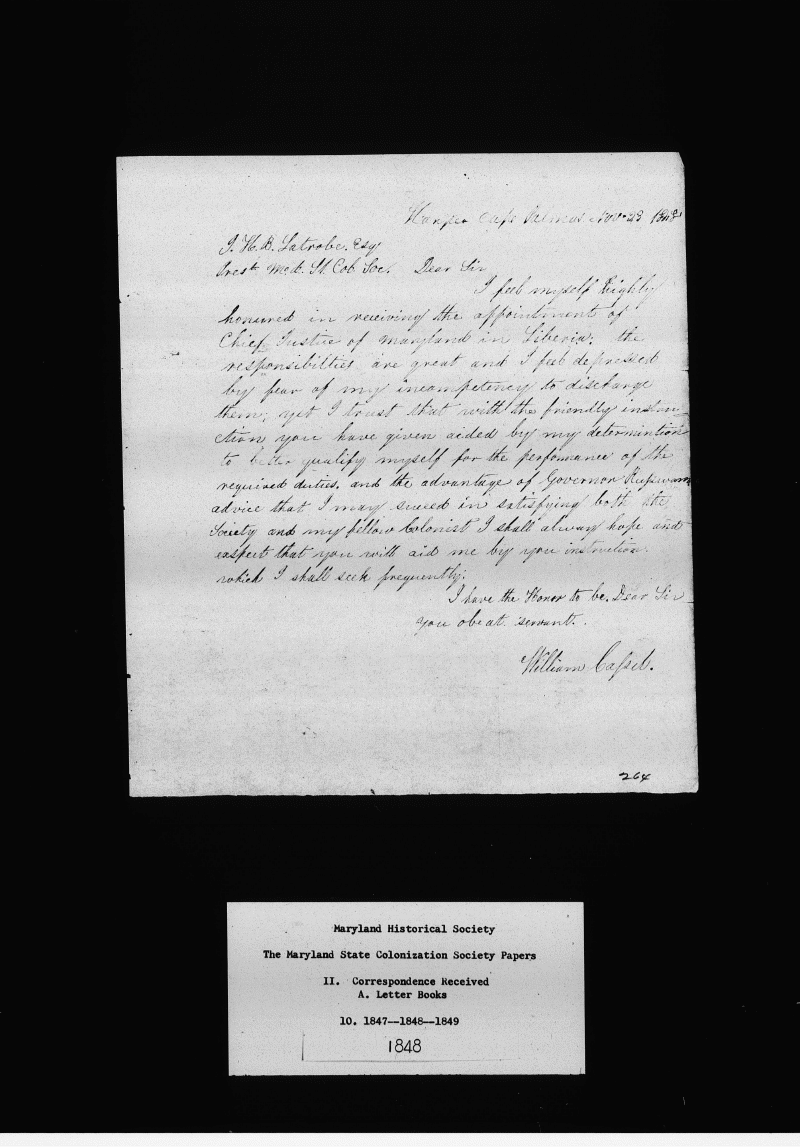 Harper Cape Palmas Nov. 23 1848
J. H. B. Latrobe. Esq
Prest. Md. St. Col Soc. Dear Sir
I feel myself highly
honoured in receiving the appointment of
Chief Justice of Maryland in Liberia. the
responsibilties are great and I feel depressed
by fear of my incompetency to discharge
them; yet I trust that with the friendly instru-
ction you have given aided by my determintion
to better qualify myself for the perfomance of the
required duties. and the advantage of Governor Russwurm
advice that I may suceed in satisfying both the
Society and my fellow Colonist I shall alway hope and
exspect that you will aid me by you instruction.
which I shall seek frequently.
I have the Honor to be. Dear Sir
you obeat. servant.
William Cassel.
264
Maryland Historical Society
The Maryland State Colonization Society Papers
II. Correspondence Received
A. Letter Books
10. 1847--1848--1849
1848